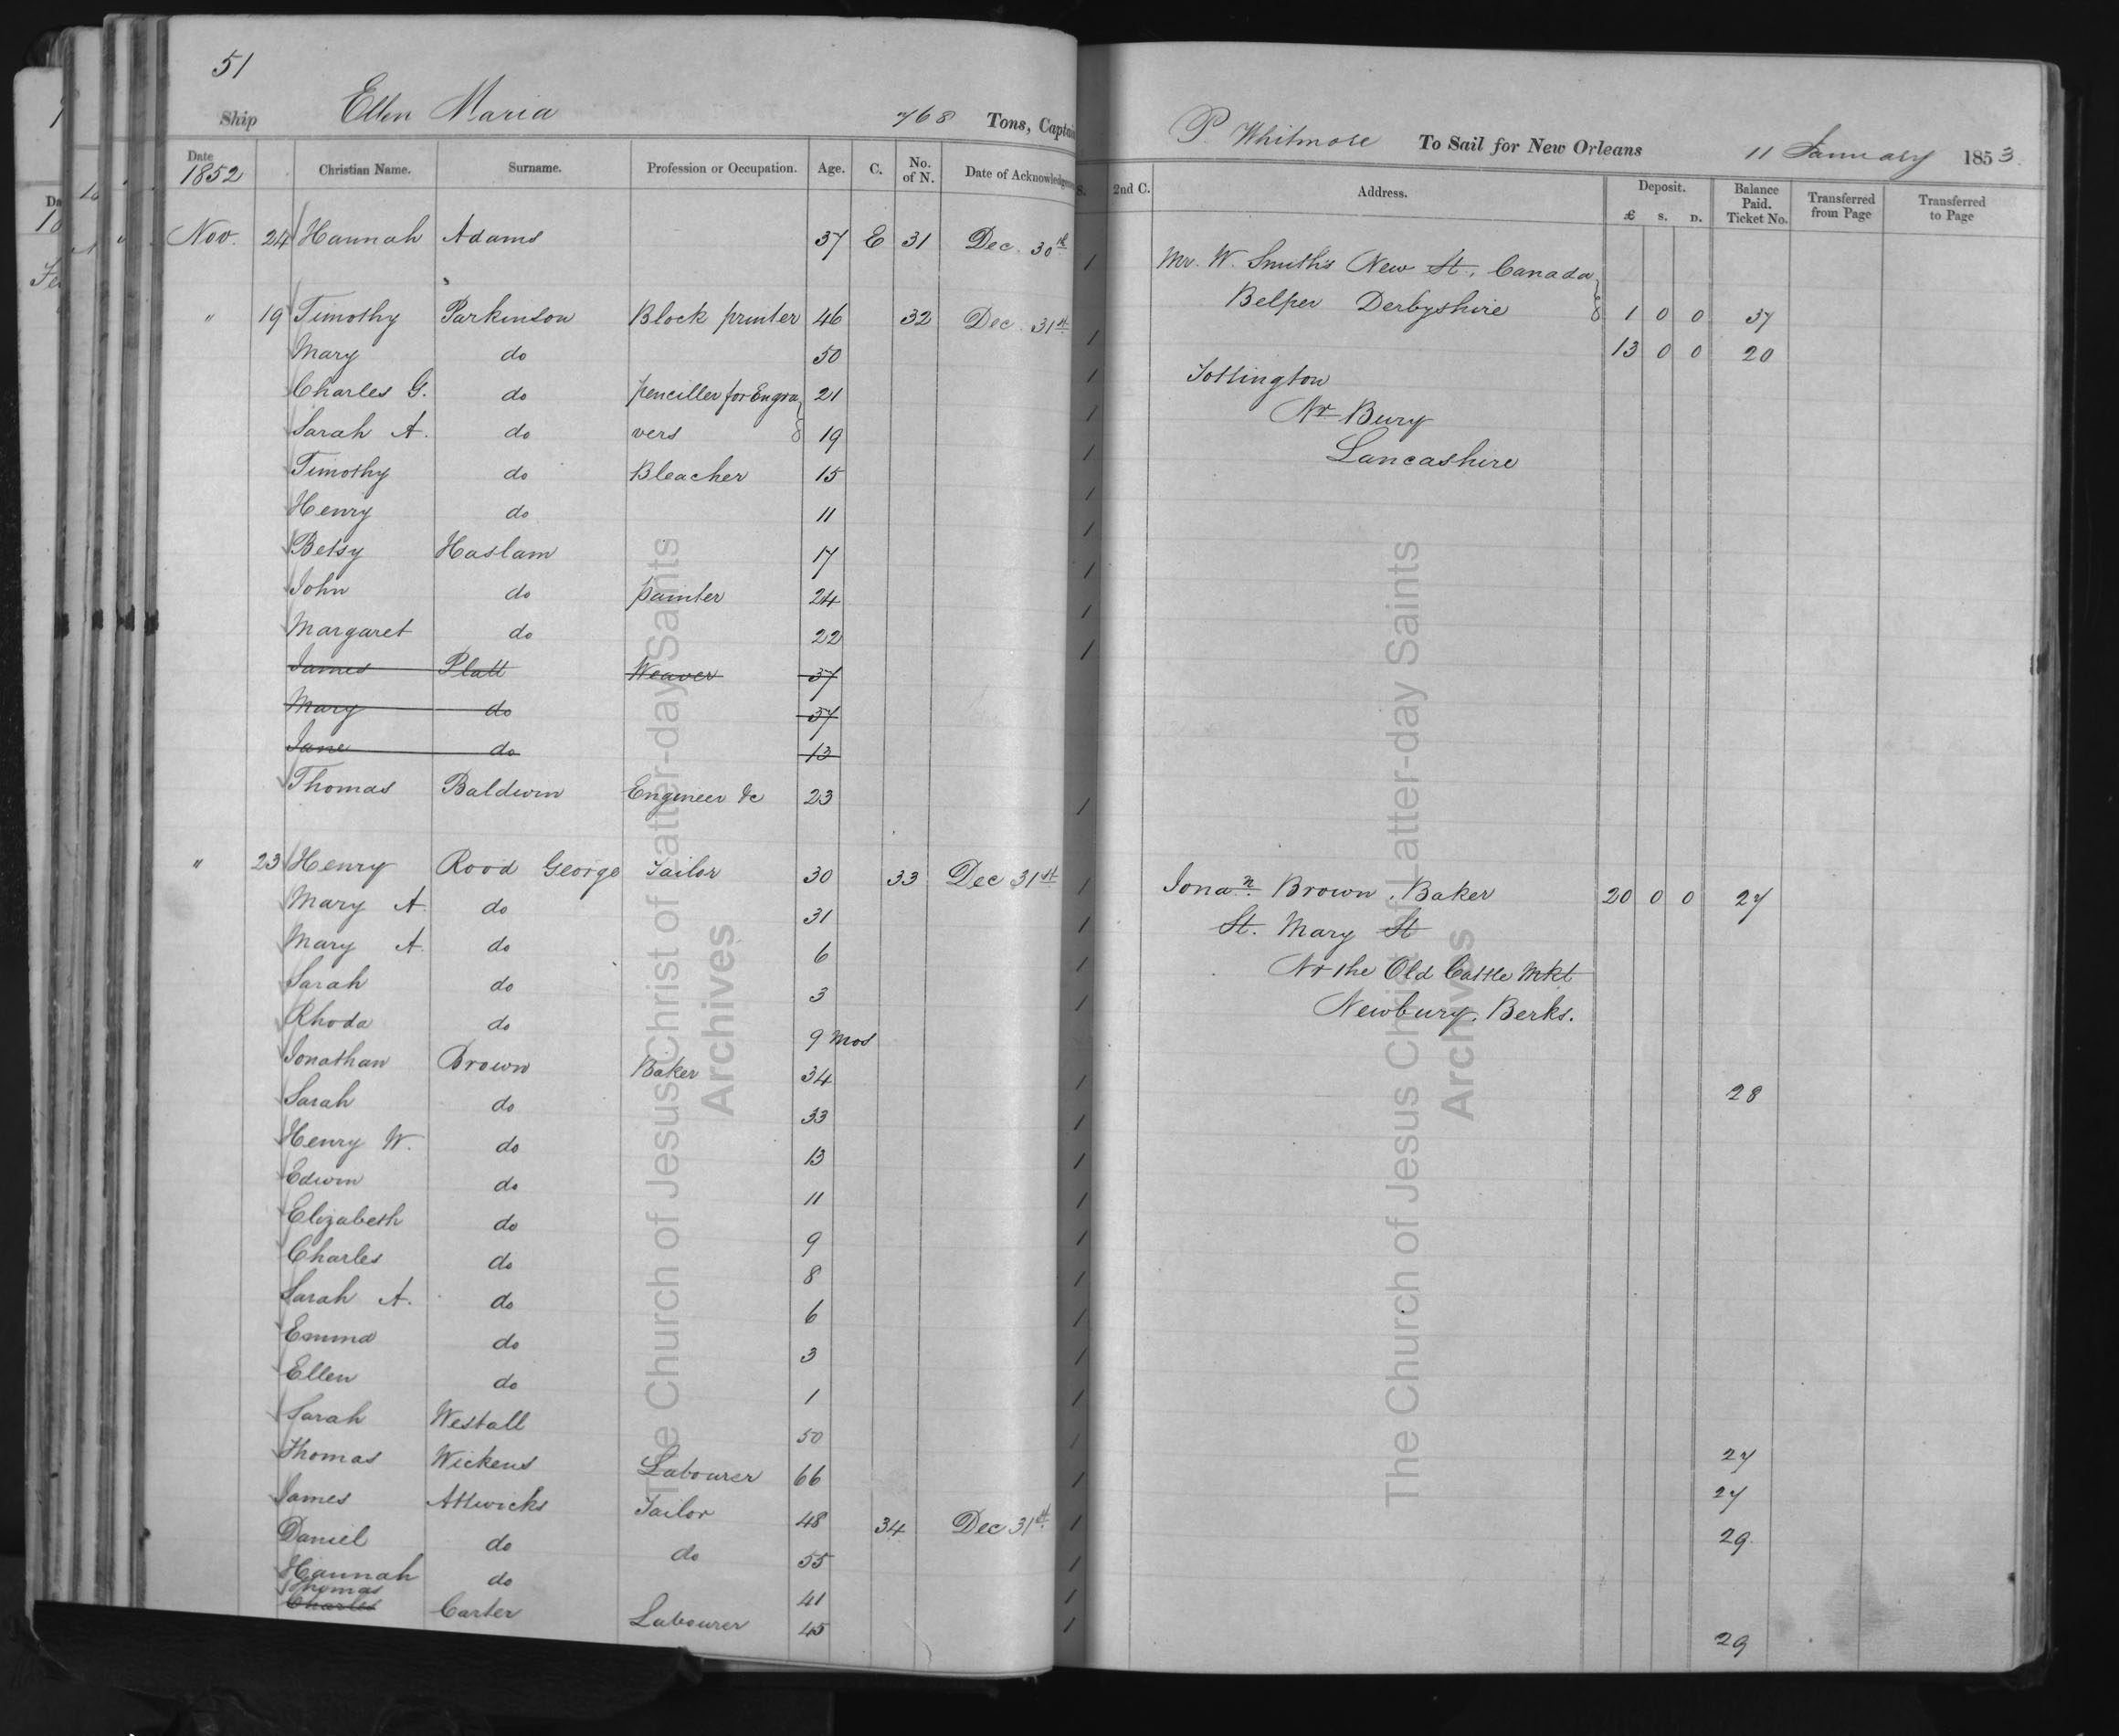 51
Ship Ellen Maria 768 Tons, Captain P. Whitmore To Sail for New Orleans 11 January 1853.
Date 1852 Christian Name. Surname. Profession or Occupation. Age. C. No. of N. Date of Acknowledgement 2nd C. Address. Deposit. £ s. D. Balance Paid. Ticket No. Transferred from Page Transferred to Page
Nov. 24 Hannah Adams 37 E 31 Dec. 30th 1 Mr. W. Smith's New St. Canada
Belper Derbyshire 1 0 0 37
" 19 Timothy Parkinson Block printer 46 32 Dec. 31st 1 13 0 0 20
Mary do 50 1 Tottington
Charles G. do penciller for Engra 21 1 Nr Bury
Sarah A. do vers 19 1 Lancashire
Timothy do Bleacher 15 1
Henry do 11 1
Betsy Haslam 17 1
John do painter 24 1
Margaret do 22 1
James Platt Weaver 37
Mary do 37
Jane do 13
Thomas Baldwin Engineer &c 23 1
" 23 Henry Rood George Tailor 30 33 Dec 31st 1 Jonan. Brown, Baker 20 0 0 27
Mary A. do 31 1 St. Mary St
Mary A. do 6 1 Nr the Old Cattle Mkt
Sarah do 3 1 Newbury. Berks.
Rhoda do 9 Mos
Jonathan Brown Baker 34 1 28
Sarah do 33 1
Henry W. do 13 1
Edwin do 11 1
Elizabeth do 9 1
Charles do 8 1
Sarah A. do 6 1
Emma do 3 1
Ellen do 1 1
Sarah Westall 50 1 27
Thomas Wickens Labourer 66 1 27
James Attwicks Tailor 48 34 Dec 31st 1 29
Daniel do do 55 1
Hannah do 41 1
Thomas
Charles Carter Labourer 45 1 29
The Church of Jesus Christ of Latter-day Saints
Archives
The Church of Jesus Christ of Latter-day Saints
Archives